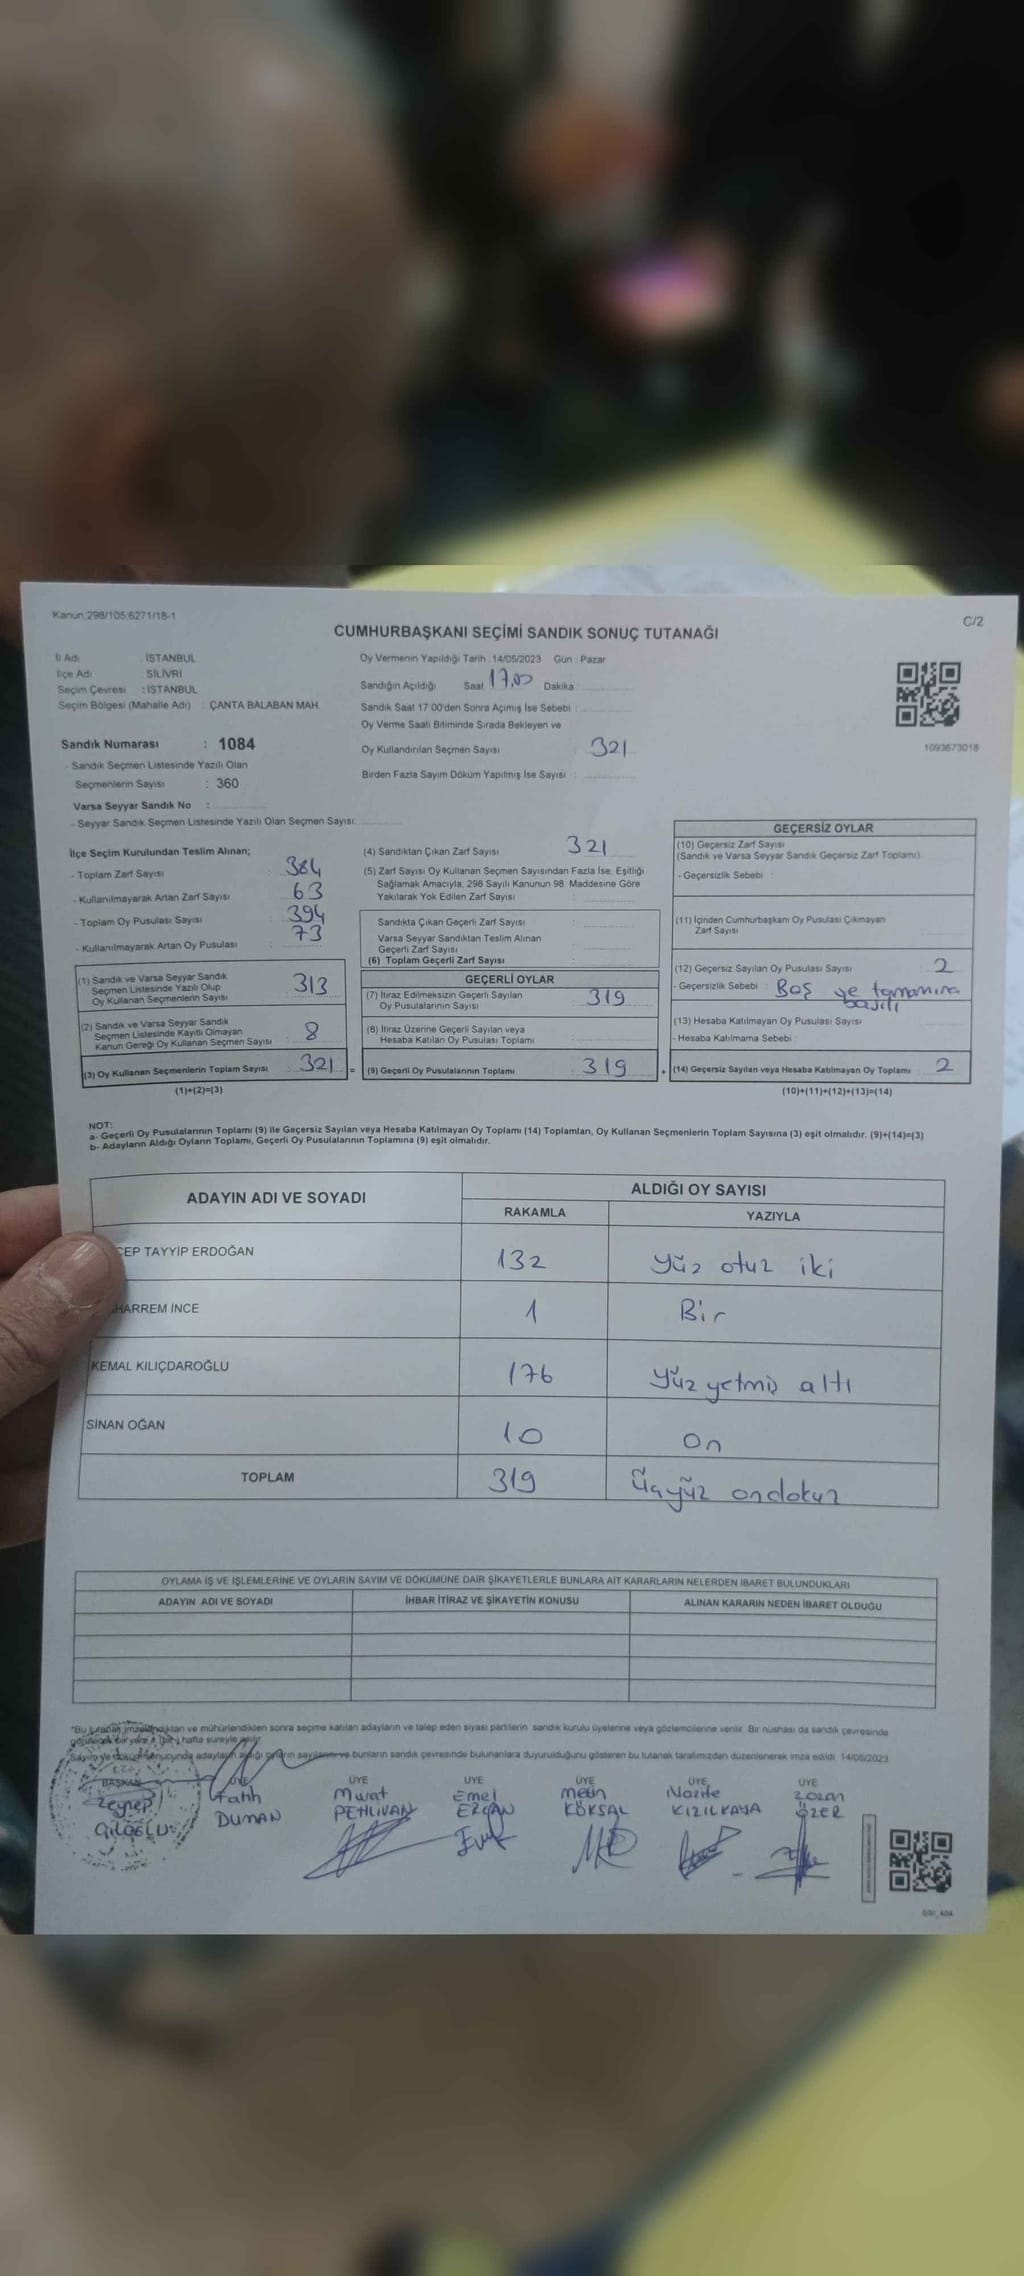 Kanun:298/105,6271/18-1
C/2
CUMHURBAŞKANI SEÇİMİ SANDIK SONUÇ TUTANAĞI
İl Adı : İSTANBUL
İlçe Adı : SİLİVRİ
Seçim Çevresi : İSTANBUL
Seçim Bölgesi (Mahalle Adı) : ÇANTA BALABAN MAH.
Sandık Numarası : 1084
- Sandık Seçmen Listesinde Yazılı Olan
Seçmenlerin Sayısı : 360
Varsa Seyyar Sandık No :
- Seyyar Sandık Seçmen Listesinde Yazılı Olan Seçmen Sayısı:
Oy Vermenin Yapıldığı Tarih : 14/05/2023 Gün : Pazar
Sandığın Açıldığı Saat 17.00 Dakika
Sandık Saat 17:00'den Sonra Açımış İse Sebebi :
Oy Verme Saati Bitiminde Sırada Bekleyen ve
Oy Kullandırılan Seçmen Sayısı : 321
Birden Fazla Sayım Döküm Yapılmış İse Sayısı :
1093673018
İlçe Seçim Kurulundan Teslim Alınan;
- Toplam Zarf Sayısı : 384
- Kullanılmayarak Artan Zarf Sayısı : 63
- Toplam Oy Pusulası Sayısı : 394
- Kullanılmayarak Artan Oy Pusulası : 73
(1) Sandık ve Varsa Seyyar Sandık
Seçmen Listesinde Yazılı Olup
Oy Kullanan Seçmenlerin Sayısı : 313
(2) Sandık ve Varsa Seyyar Sandık
Seçmen Listesinde Kayıtlı Olmayan
Kanun Gereği Oy Kullanan Seçmen Sayısı : 8
(3) Oy Kullanan Seçmenlerin Toplam Sayısı : 321 =
(1)+(2)=(3)
(4) Sandıktan Çıkan Zarf Sayısı : 321
(5) Zarf Sayısı Oy Kullanan Seçmen Sayısından Fazla İse, Eşitliği
Sağlamak Amacıyla, 298 Sayılı Kanunun 98. Maddesine Göre
Yakılarak Yok Edilen Zarf Sayısı :
Sandıkta Çıkan Geçerli Zarf Sayısı :
Varsa Seyyar Sandıktan Teslim Alınan
Geçerli Zarf Sayısı :
(6) Toplam Geçerli Zarf Sayısı :
GEÇERLİ OYLAR
(7) İtiraz Edilmeksizin Geçerli Sayılan
Oy Pusulalarının Sayısı : 319
(8) İtiraz Üzerine Geçerli Sayılan veya
Hesaba Katılan Oy Pusulası Toplamı :
(9) Geçerli Oy Pusulalarının Toplamı : 319 +
GEÇERSİZ OYLAR
(10) Geçersiz Zarf Sayısı
(Sandık ve Varsa Seyyar Sandık Geçersiz Zarf Toplamı)
- Geçersizlik Sebebi :
(11) İçinden Cumhurbaşkanı Oy Pusulası Çıkmayan
Zarf Sayısı
(12) Geçersiz Sayılan Oy Pusulası Sayısı : 2
- Geçersizlik Sebebi : Boş ve tamamına
basılı
(13) Hesaba Katılmayan Oy Pusulası Sayısı :
- Hesaba Katılmama Sebebi :
(14) Geçersiz Sayılan veya Hesaba Katılmayan Oy Toplamı : 2
(10)+(11)+(12)+(13)=(14)
NOT:
a- Geçerli Oy Pusulalarının Toplamı (9) ile Geçersiz Sayılan veya Hesaba Katılmayan Oy Toplamı (14) Toplamları, Oy Kullanan Seçmenlerin Toplam Sayısına (3) eşit olmalıdır. (9)+(14)=(3)
b- Adayların Aldığı Oyların Toplamı, Geçerli Oy Pusulalarının Toplamına (9) eşit olmalıdır.
ADAYIN ADI VE SOYADI ALDIĞI OY SAYISI
RAKAMLA YAZIYLA
CEP TAYYİP ERDOĞAN 132 Yüz otuz iki
HARREM İNCE 1 Bir
KEMAL KILIÇDAROĞLU 176 Yüz yetmiş altı
SİNAN OĞAN 10 on
TOPLAM 319 üçyüz ondokuz
OYLAMA İŞ VE İŞLEMLERİNE VE OYLARIN SAYIM VE DÖKÜMÜNE DAİR ŞİKAYETLERLE BUNLARA AİT KARARLARIN NELERDEN İBARET BULUNDUKLARI
ADAYIN ADI VE SOYADI İHBAR İTİRAZ VE ŞİKAYETİN KONUSU ALINAN KARARIN NEDEN İBARET OLDUĞU
"Bu tutanak imzalandıktan ve mühürlendikten sonra seçime katılan adayların ve talep eden siyasi partilerin sandık kurulu üyelerine veya gözlemcilerine verilir. Bir nüshası da sandık çevresinde
görülecek bir yere 1 (bir) hafta süreyle asılır.
Sayım ve döküm sonucunda adayların aldığı oyların sayılarını ve bunların sandık çevresinde bulunanlara duyurulduğunu gösteren bu tutanak tarafımızdan düzenlenerek imza edildi. 14/05/2023
BAŞKAN ÜYE ÜYE ÜYE ÜYE ÜYE ÜYE
Zeynep Fatih Murat Emel Metin Nazife ozan
DUMAN PEHLİVAN ERCAN KÖKSAL KIZILKAYA ÖZER